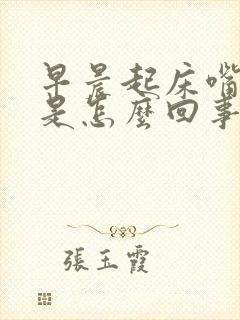 早晨起床嘴
是怎麼回事
張玉霞